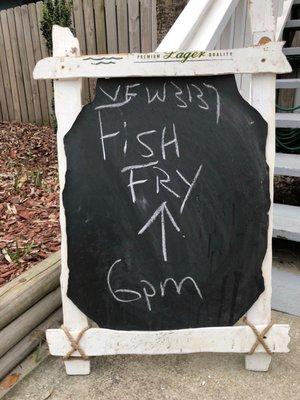 PREMIUM Lager QUALITY
VFW3137
FISH
FRY
6pm